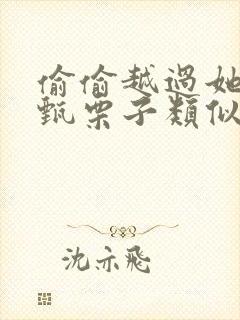 偷偷越過她
甄栗子類似
沈亦飛